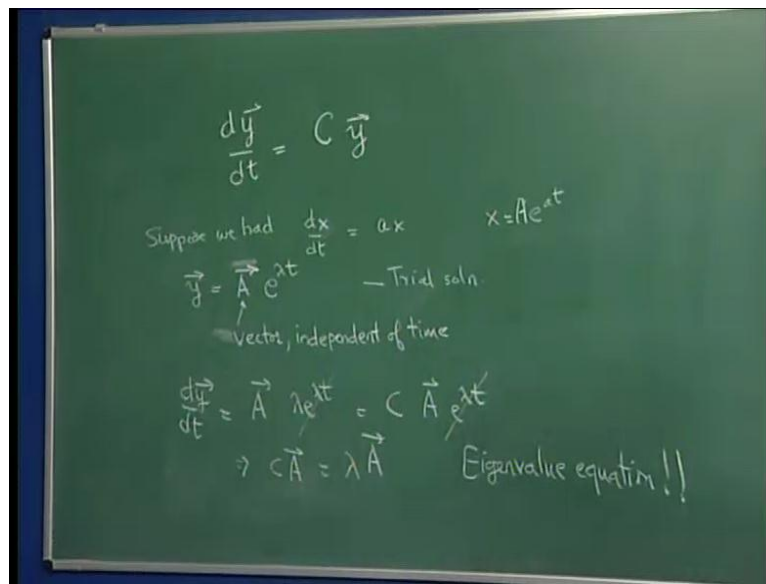 dy⃗/dt = C y⃗
Suppose we had dx/dt = ax x = Ae^{at}
y⃗ = A⃗ e^{λt} — Trial soln.
Vector, independent of time
dy⃗/dt = A⃗ λe^{λt} = C A⃗ e^{λt}
⇒ CA⃗ = λA⃗ Eigenvalue equation!!